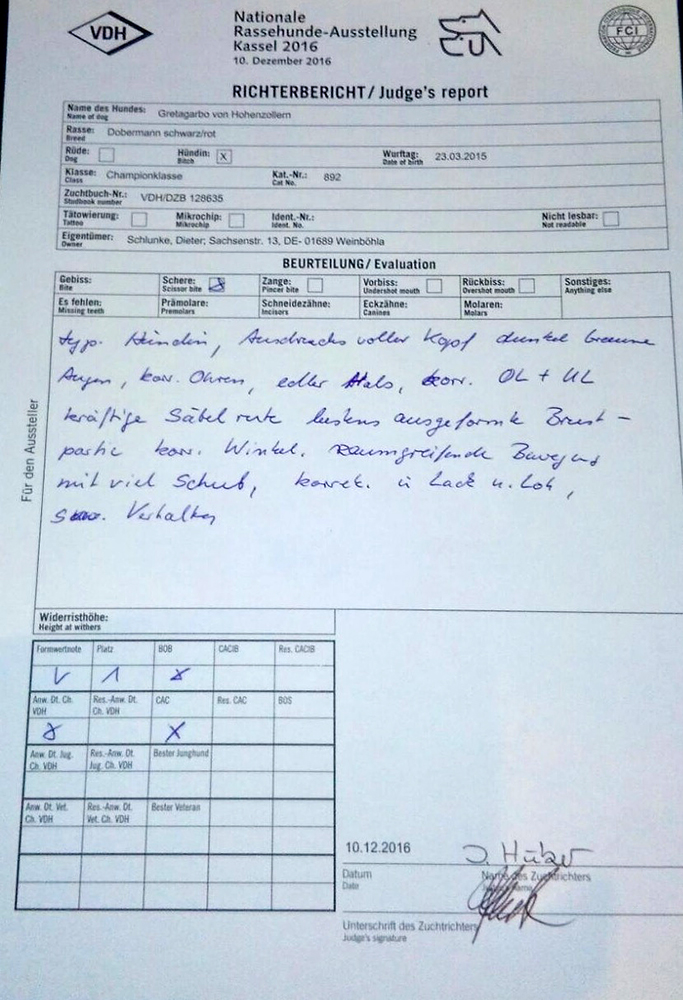 VDH
Nationale
Rassehunde-Ausstellung
Kassel 2016
10. Dezember 2016
FCI
RICHTERBERICHT / Judge's report
Name des Hundes: Gretagarbo von Hohenzollern
Name of dog
Rasse: Dobermann schwarz/rot
Breed
Rüde: Hündin: X Wurftag: 23.03.2015
Dog Bitch Date of birth
Klasse: Championklasse Kat.-Nr.: 892
Class Cat No.
Zuchtbuch-Nr.: VDH/DZB 128635
Studbook number
Tätowierung: Mikrochip: Ident.-Nr.: Nicht lesbar:
Tattoo Mikrochip Ident. No. Not readable
Eigentümer: Schlunke, Dieter; Sachsenstr. 13, DE- 01689 Weinböhla
Owner
BEURTEILUNG / Evaluation
Gebiss: Schere: X Zange: Vorbiss: Rückbiss: Sonstiges:
Bite Scissor bite Pincer bite Undershot mouth Overshot mouth Anything else
Es fehlen: Prämolare: Schneidezähne: Eckzähne: Molaren:
Missing teeth Premolars Incisors Canines Molars
typ. Hündin, Ausdrucks voller Kopf dunkel braune
Augen, korr. Ohren, edler Hals, korr. OL + UL
kräftige Säbelrute bestens ausgeformte Brust-
partie korr. Winkel. raumgreifende Bewegung
mit viel Schub, korrek. in Lack u. Loh,
Verhalten
Für den Aussteller
Widerristhöhe:
Height at withers
Formwertnote Platz BOB CACIB Res. CACIB
V 1 X
Anw. Dt. Ch. VDH Res.-Anw. Dt. Ch. VDH CAC Res. CAC BOS
X X
Anw. Dt. Jug. Ch. VDH Res.-Anw. Dt. Jug. Ch. VDH Bester Junghund
Anw. Dt. Vet. Ch. VDH Res.-Anw. Dt. Vet. Ch. VDH Bester Veteran
10.12.2016 J. Hüber
Datum Name des Zuchtrichters
Date
Unterschrift des Zuchtrichters
Judge's signature